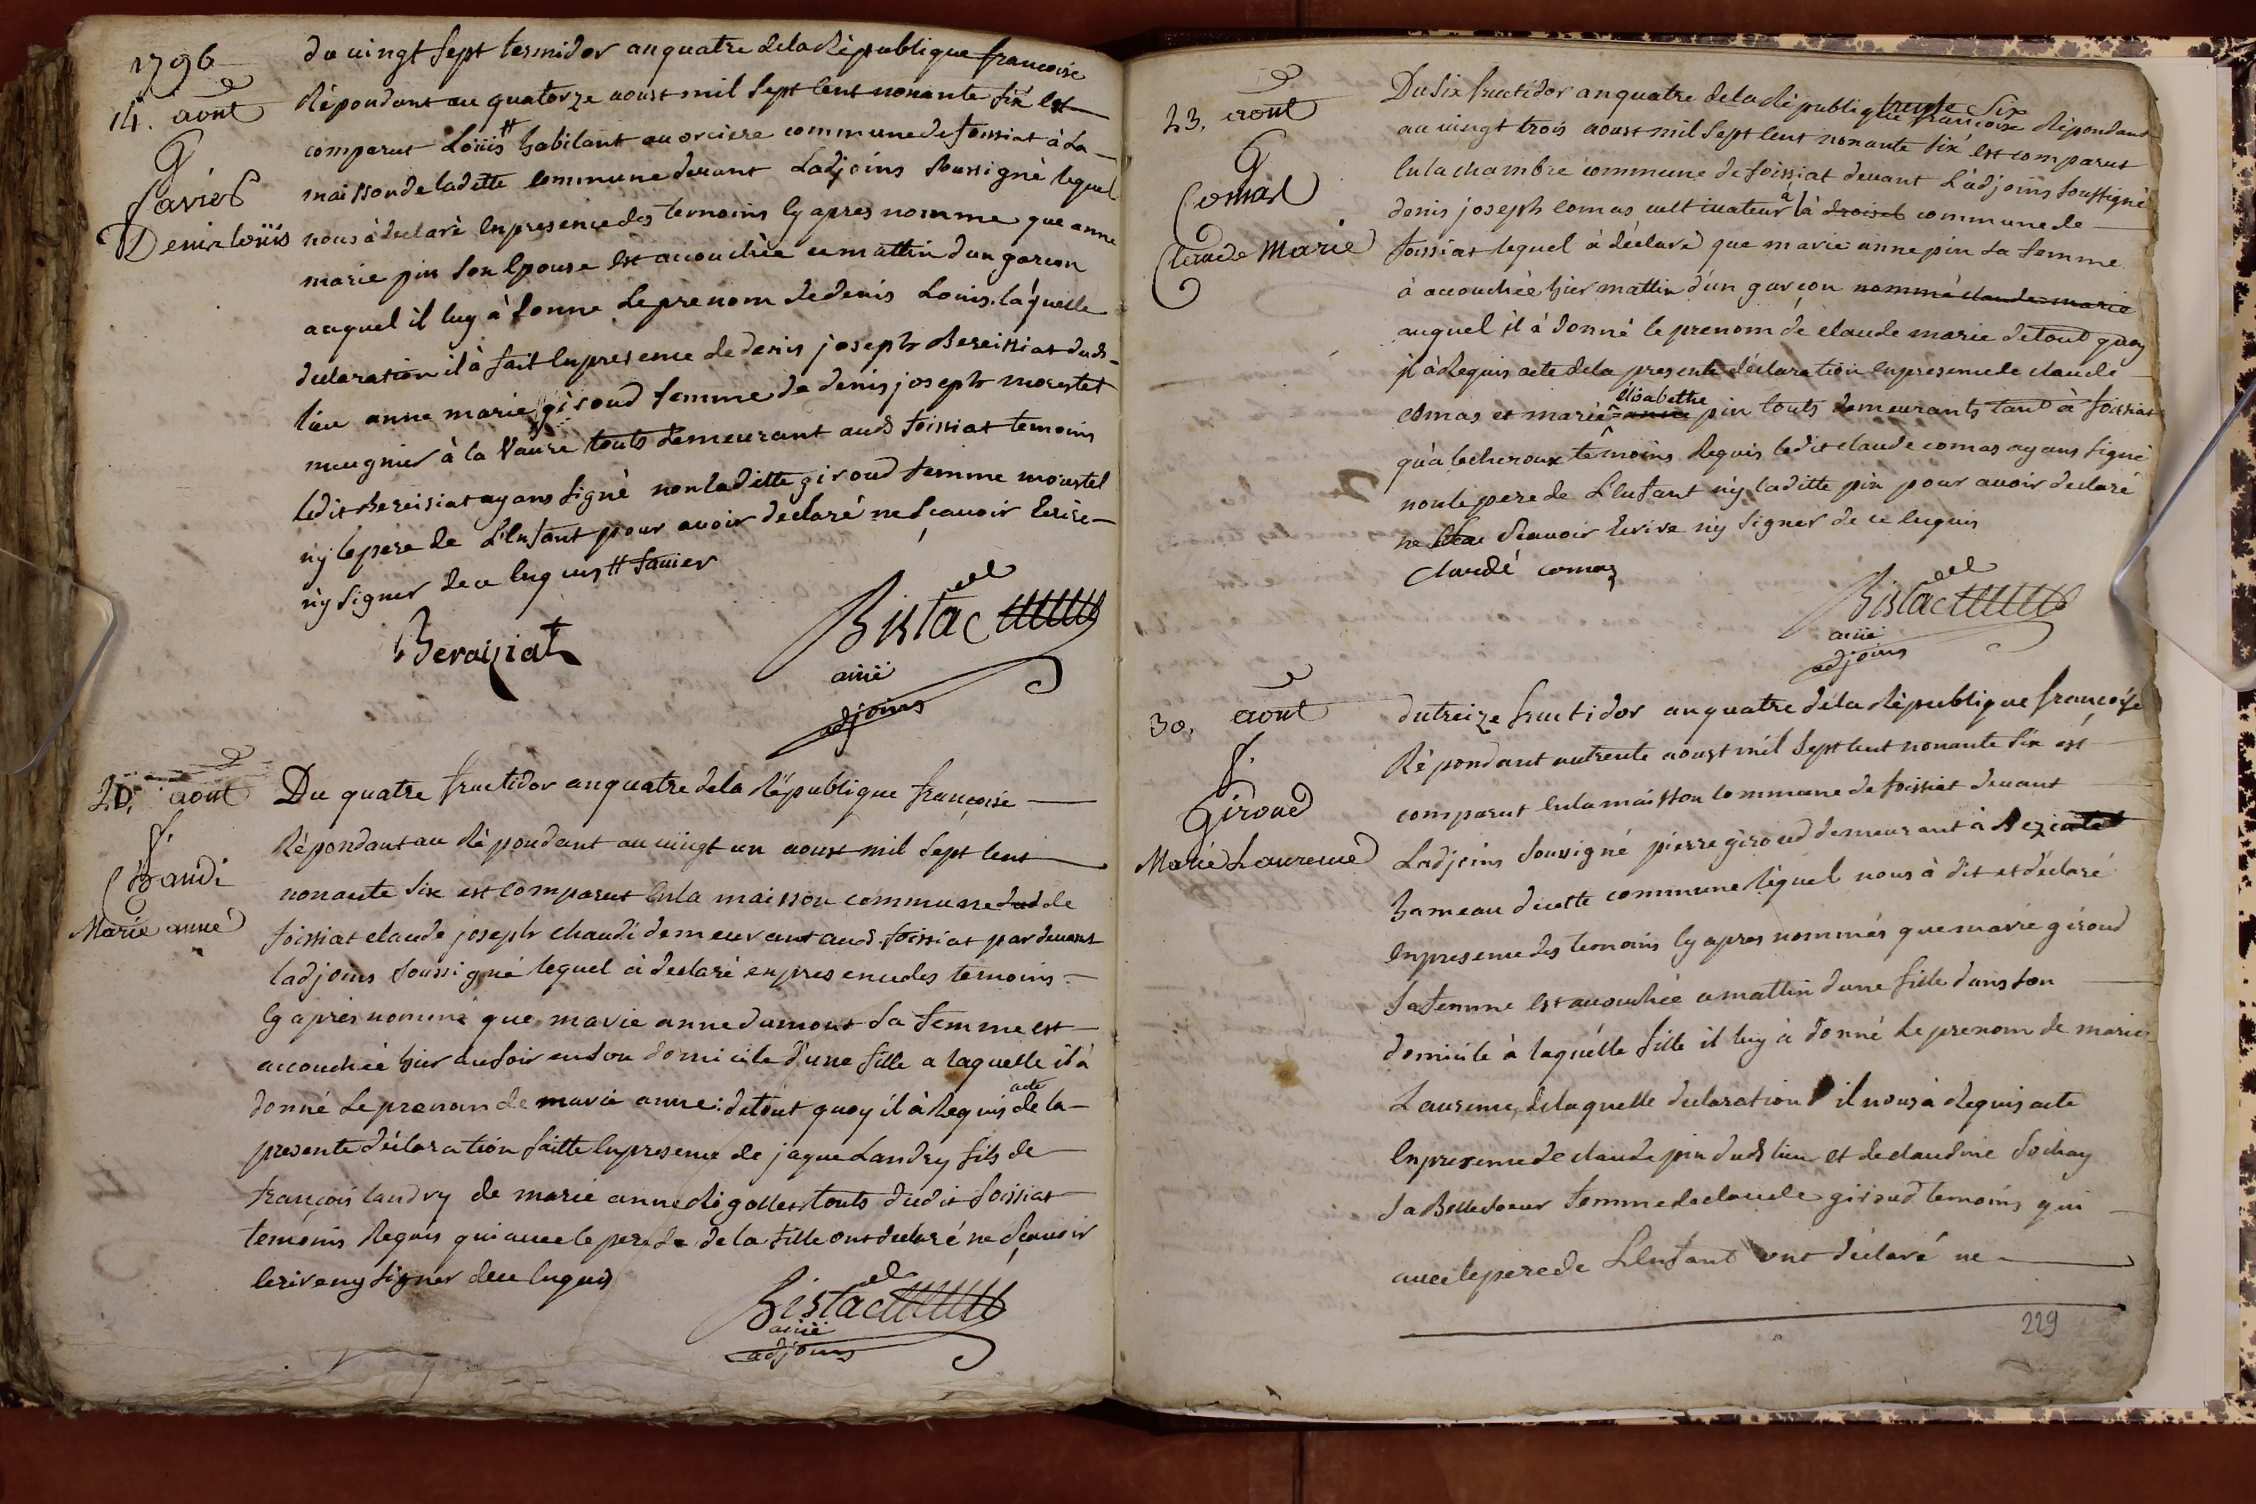 1796
14. aout
G
favier
Denis loüis
du vingt sept termidor an quatre de la Republique francoise
Répondant au quatorze aoust mil sept cent nonante six est
comparut Loüis # habitant au orciere commune de foissiat à La
maisson de laditte commune devant Ladjoins soussigné lequel
nous à declaré en presence des temoins cy apres nomme que anne
marie pin son Epouse est accouchée ce mattin dun garcon
auquel il luy à donne Le prenom de denis Louis, laquelle
declaration il à fait en presence de denis joseph Bereissiat dud-
lieu anne marie giroud femme de denis joseph morestet
meugnier à la Vaure touts demeurant aud foissiat temoins
ledit Bereisiat ayans signé non laditte giroud femme mourtel
ny le pere de L'enfant pour avoir declaré ne sçavoir Ecrire
ny signer de ce enquis # favier
Beraiziat
Bistac
ainé
adjoins
21. aout
f.
Chaudi
Marie anne
Du quatre fructidor an quatre de la République françoise
Répondant au Répondant au vingt un aoust mil sept cent
nonante six est comparut en la maisson commune dud de
foissiat claude joseph chaudi demeurant aud. foissiat par devant
ladjoins soussigné lequel à declaré en presence des temoins
cy aprés nommé que marie anne dumont sa femme est
accouchée hier au soir en son domicile d'une fille a laquelle il à
donné Le prenom de marie anne: de tout quoy il à Requis acte de la
presente déclaration faitte en presence de jaque Landry fils de
françois landry de marie anne Rigollet touts dudit foissiat
temoins Requis qui avec le pere de de la fille ont declaré ne sçavoir
Ecrire ny signer de ce enquis
Bistac
ainé
adjoins
23. aout
G
Comas
Claude Marie
Du six fructidor an quatre de la Republique françoise Répondant
trente six
au vingt trois aoust mil sept cent nonante six est comparut
en la chambre commune de foissiat devant L'adjoins soussigné
denis joseph comas cultivateur à là droisel commune de
foissiat lequel à déclaré que marie anne pin sa femme
à accouchée hier mattin d'un garçon nommé claude marie
auquel il à donné le prenom de claude marie de tout quoy
il à Requis acte de la presente déclaration en presence de claude
comas et marie anne élisabethe pin touts demeurants tant à foissiat
qu'à lecheroux témoins Requis ledit claude comas ayans signé
non le pere de L'enfant n'y laditte pin pour avoir declaré
ne sçavoir Ecrire n'y signer de ce enquis
Claudé comas
Bistac
ainé
adjoins
30. aout
f.
Giroud
Marie Laurence
du treize fructidor an quatre de la République françoise
Répondant au trente aoust mil sept cent nonante six est
comparut en la maisson commune de foissiat devant
Ladjoins soussigné pierre giroud demeurant à
hameau de cette commune léquel nous à dit et déclaré
en presence des temoins cy apres nommés que marie giroud
sa femme est accouchée ce mattin dune fille dans son
domicile à laquélle fille il luy à donné Le prenom de marie
Laurence, de laquelle declaration il nous à Requis acte
en presence de claude pin dud lieu et de claudine sochay
sa Belle soeur femme de claude giroud temoins qui
avec le pere de L'enfant ont déclaré ne
229